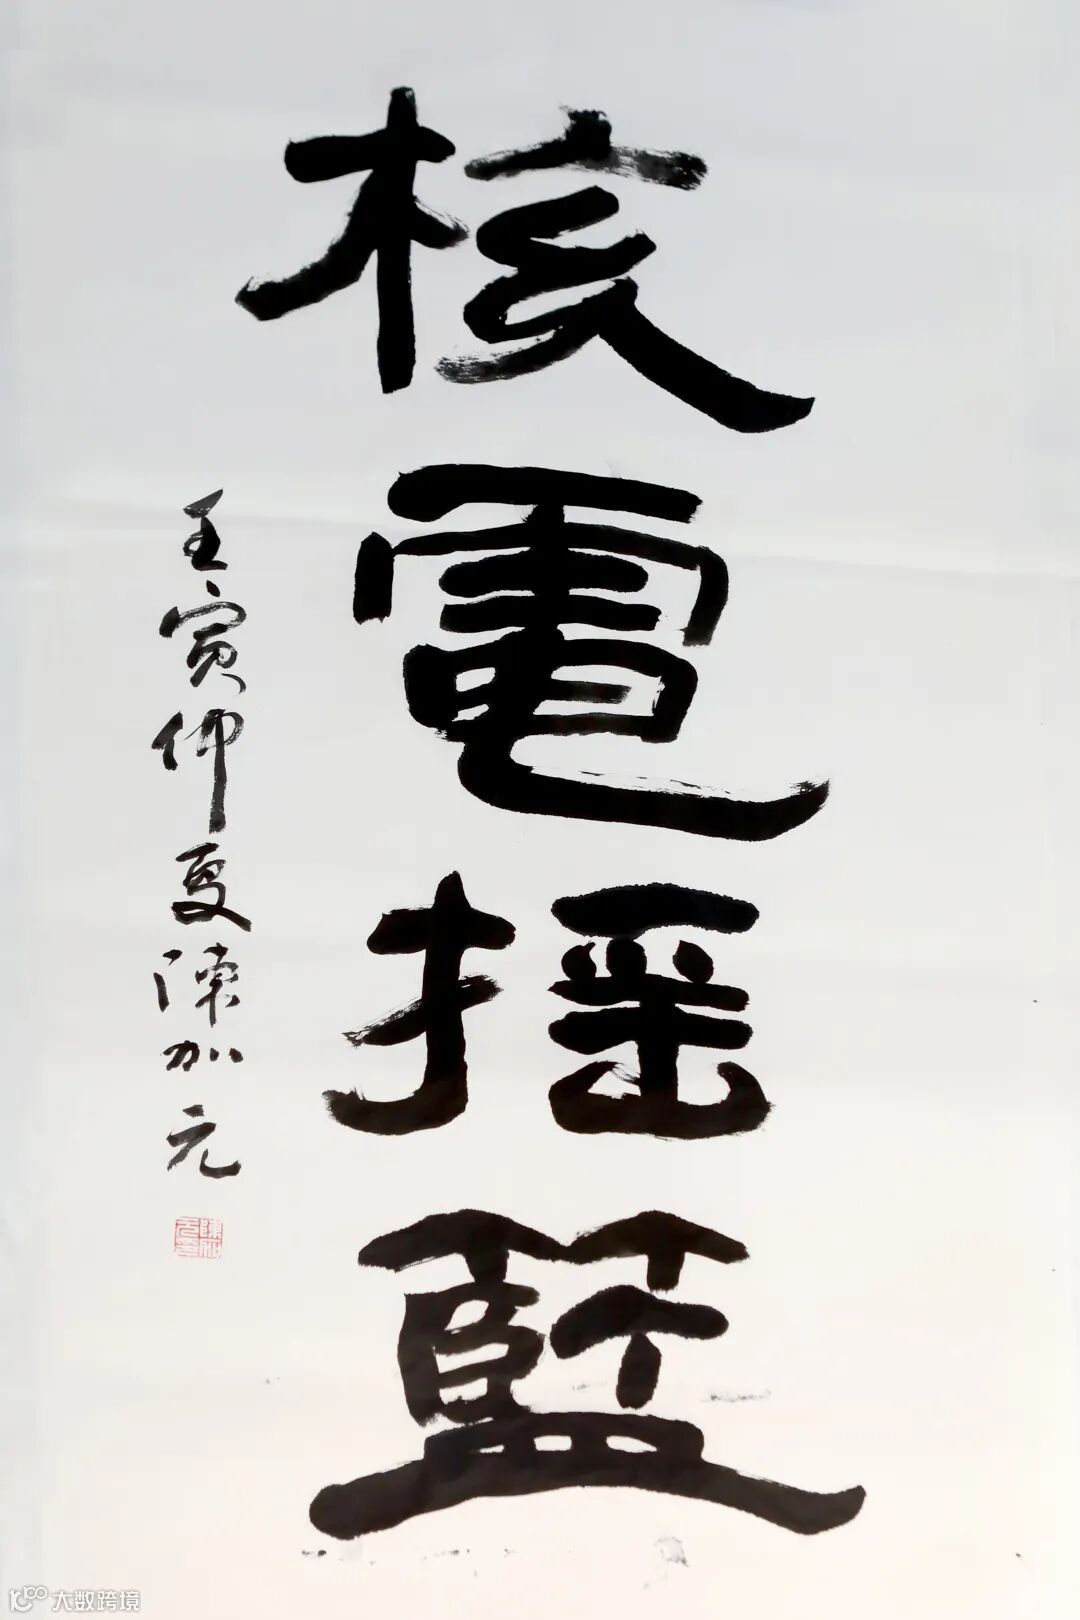 核電摇籃
壬寅仲夏陳加元
大数跨境